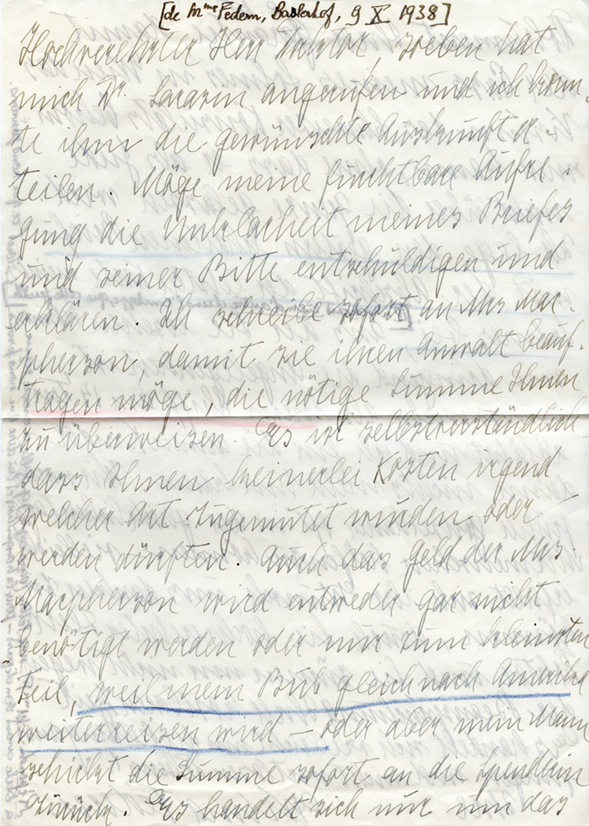 [de Mme Federn, Baslerhof, 9 X 1938]
Hochverehrter Herr Doktor, soeben hat
mich Dr. Sarasin angerufen und ich konn-
te ihm die gewünschte Auskunft er-
teilen. Möge meine furchtbare Aufre-
gung die Unklarheit meines Briefes
und seiner Bitte entschuldigen und
erklären. Ich schreibe sofort an Mrs Mac-
pherson, damit sie ihren Anwalt beauf-
tragen möge, die nötige Summe Ihnen
zu überweisen. Es ist selbstverständlich
dass Ihnen keinerlei Kosten irgend
welcher Art zugemutet wurden oder
werden dürften. Auch das Geld der Mrs.
Macpherson wird entweder gar nicht
benötigt werden oder nur zum kleinsten
Teil, weil mein Bub gleich nach Amerika
weiterreisen wird – oder aber mein Mann
schickt die Summe sofort an die Spenderin
zurück. Es handelt sich nur um das